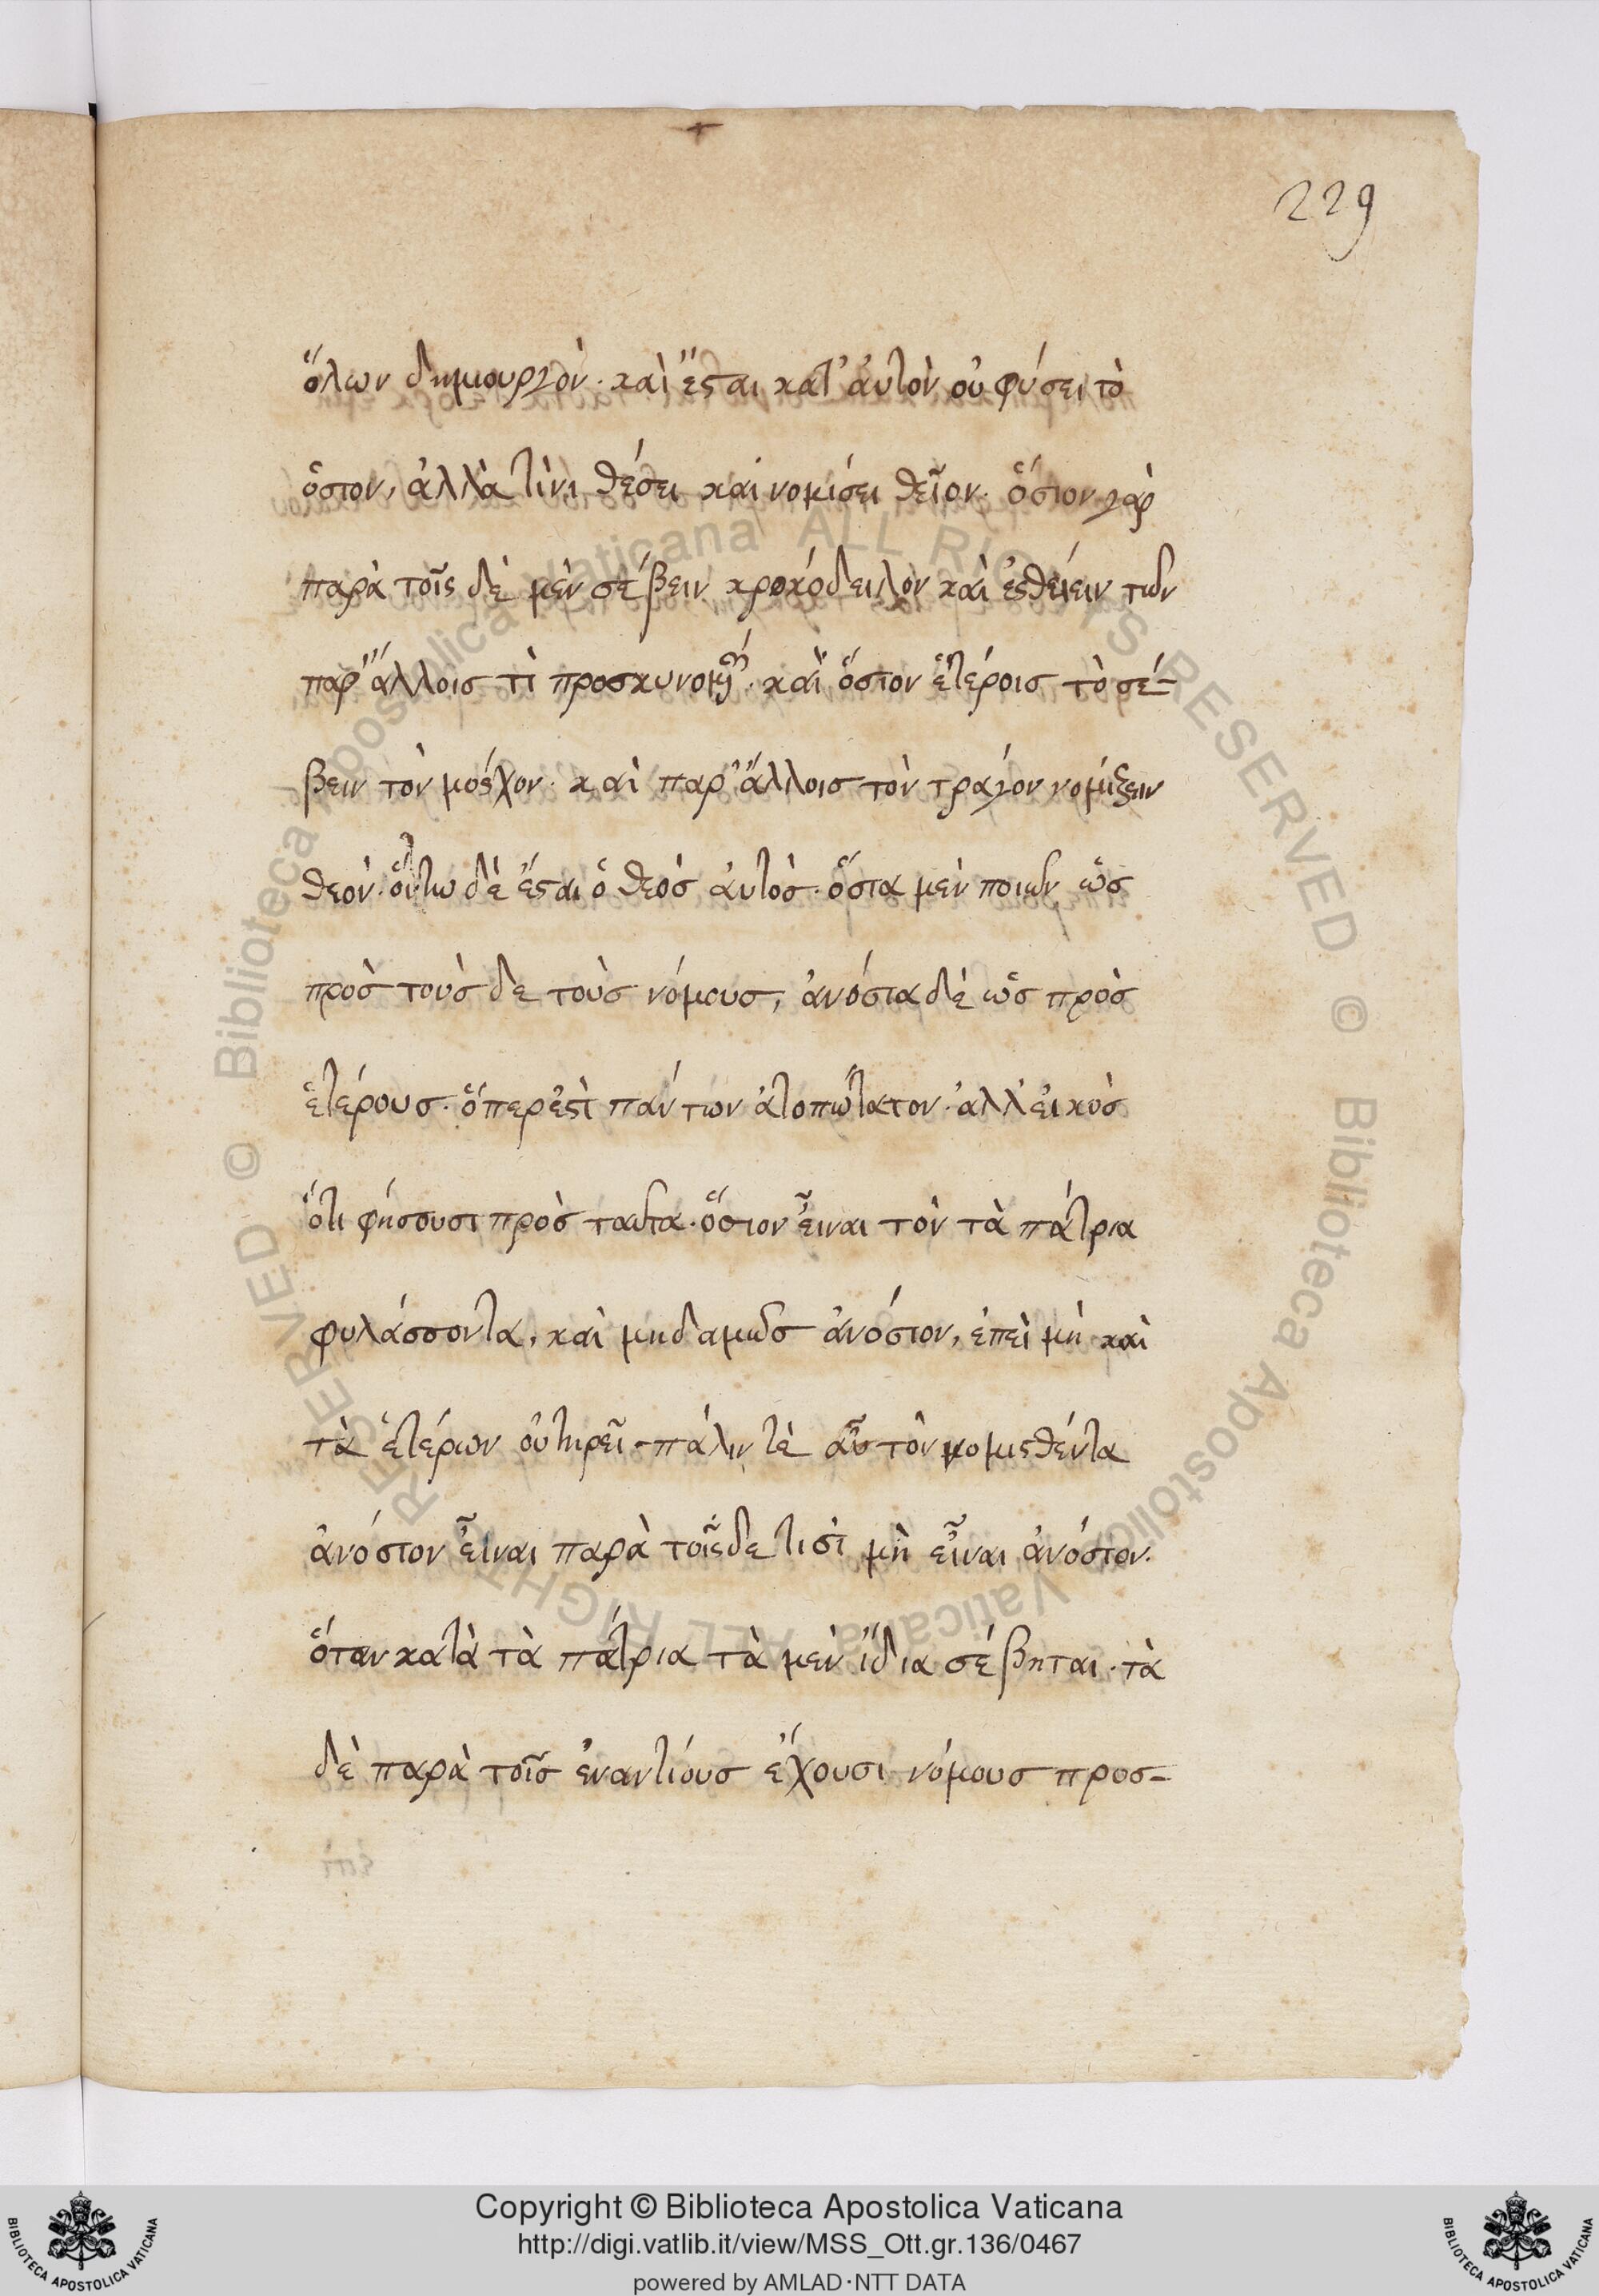 229
ὅλων δημιουργὸν· καὶ ἔσται κατ' ἀυτὸν οὐ φύσει τὸ
ὅσιον, ἀλλὰ τινὶ θέσει καὶ νομίσει θεῖον· ὅσιον γὰρ
παρὰ τοῖς δὲ μὲν σέβειν κροκόδειλον καὶ ἐσθείειν τῶν
παρ' ἄλλοις τὶ προσκυνουμένων· καὶ ὅσιον ἑτέροις τὸ σέ-
βειν τὸν μόσχον· καὶ παρ' ἄλλοις τὸν τράγον νομίζειν
θεὸν· οὕτω δὲ ἔσται ὁ θεὸς ἀυτὸς· ὅσια μὲν ποιῶν ὡς
πρὸς τοὺς δε τοὺς νόμους, ἀνόσια δὲ ὡς πρὸς
ἑτέρους· ὅπερ ἐστὶ πάντων ἀτοπώτατον· ἀλλ' ἐικὸς
ὅτι φήσουσι πρὸς ταῦτα· ὅσιον εἶναι τὸν τὰ πάτρια
φυλάσσοντα, καὶ μηδαμῶς ἀνόσιον, ἐπεὶ μὴ καὶ
τὰ ἑτέρων οὐ τηρεῖ· πάλιν τὲ αὖ τὸν νομισθέντα
ἀνόσιον εἶναι παρὰ τοῖσδε τισὶ μὴ εἶναι ἀνόσιον·
ὅταν κατὰ τὰ πάτρια τὰ μὲν ἴδια σέβηται· τὰ
δὲ παρὰ τοῖς ἐναντίους ἔχουσι νόμους προσ-
Copyright © Biblioteca Apostolica Vaticana
http://digi.vatlib.it/view/MSS_Ott.gr.136/0467
powered by AMLAD·NTT DATA
BIBLIOTECA APOSTOLICA VATICANA
BIBLIOTECA APOSTOLICA VATICANA
© Biblioteca Apostolica Vaticana ALL RIGHTS RESERVED © Biblioteca Apostolica Vaticana ALL RIGHTS RESERVED